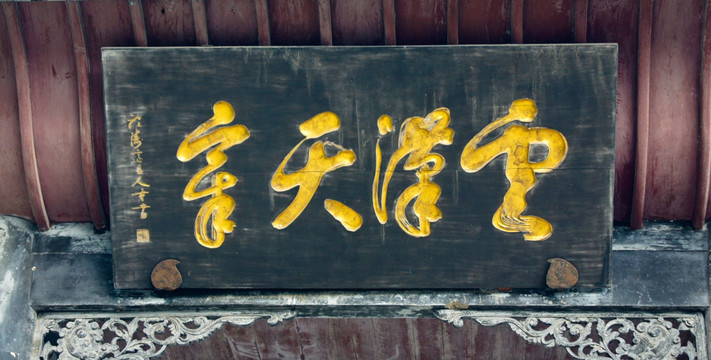 雲漢天章